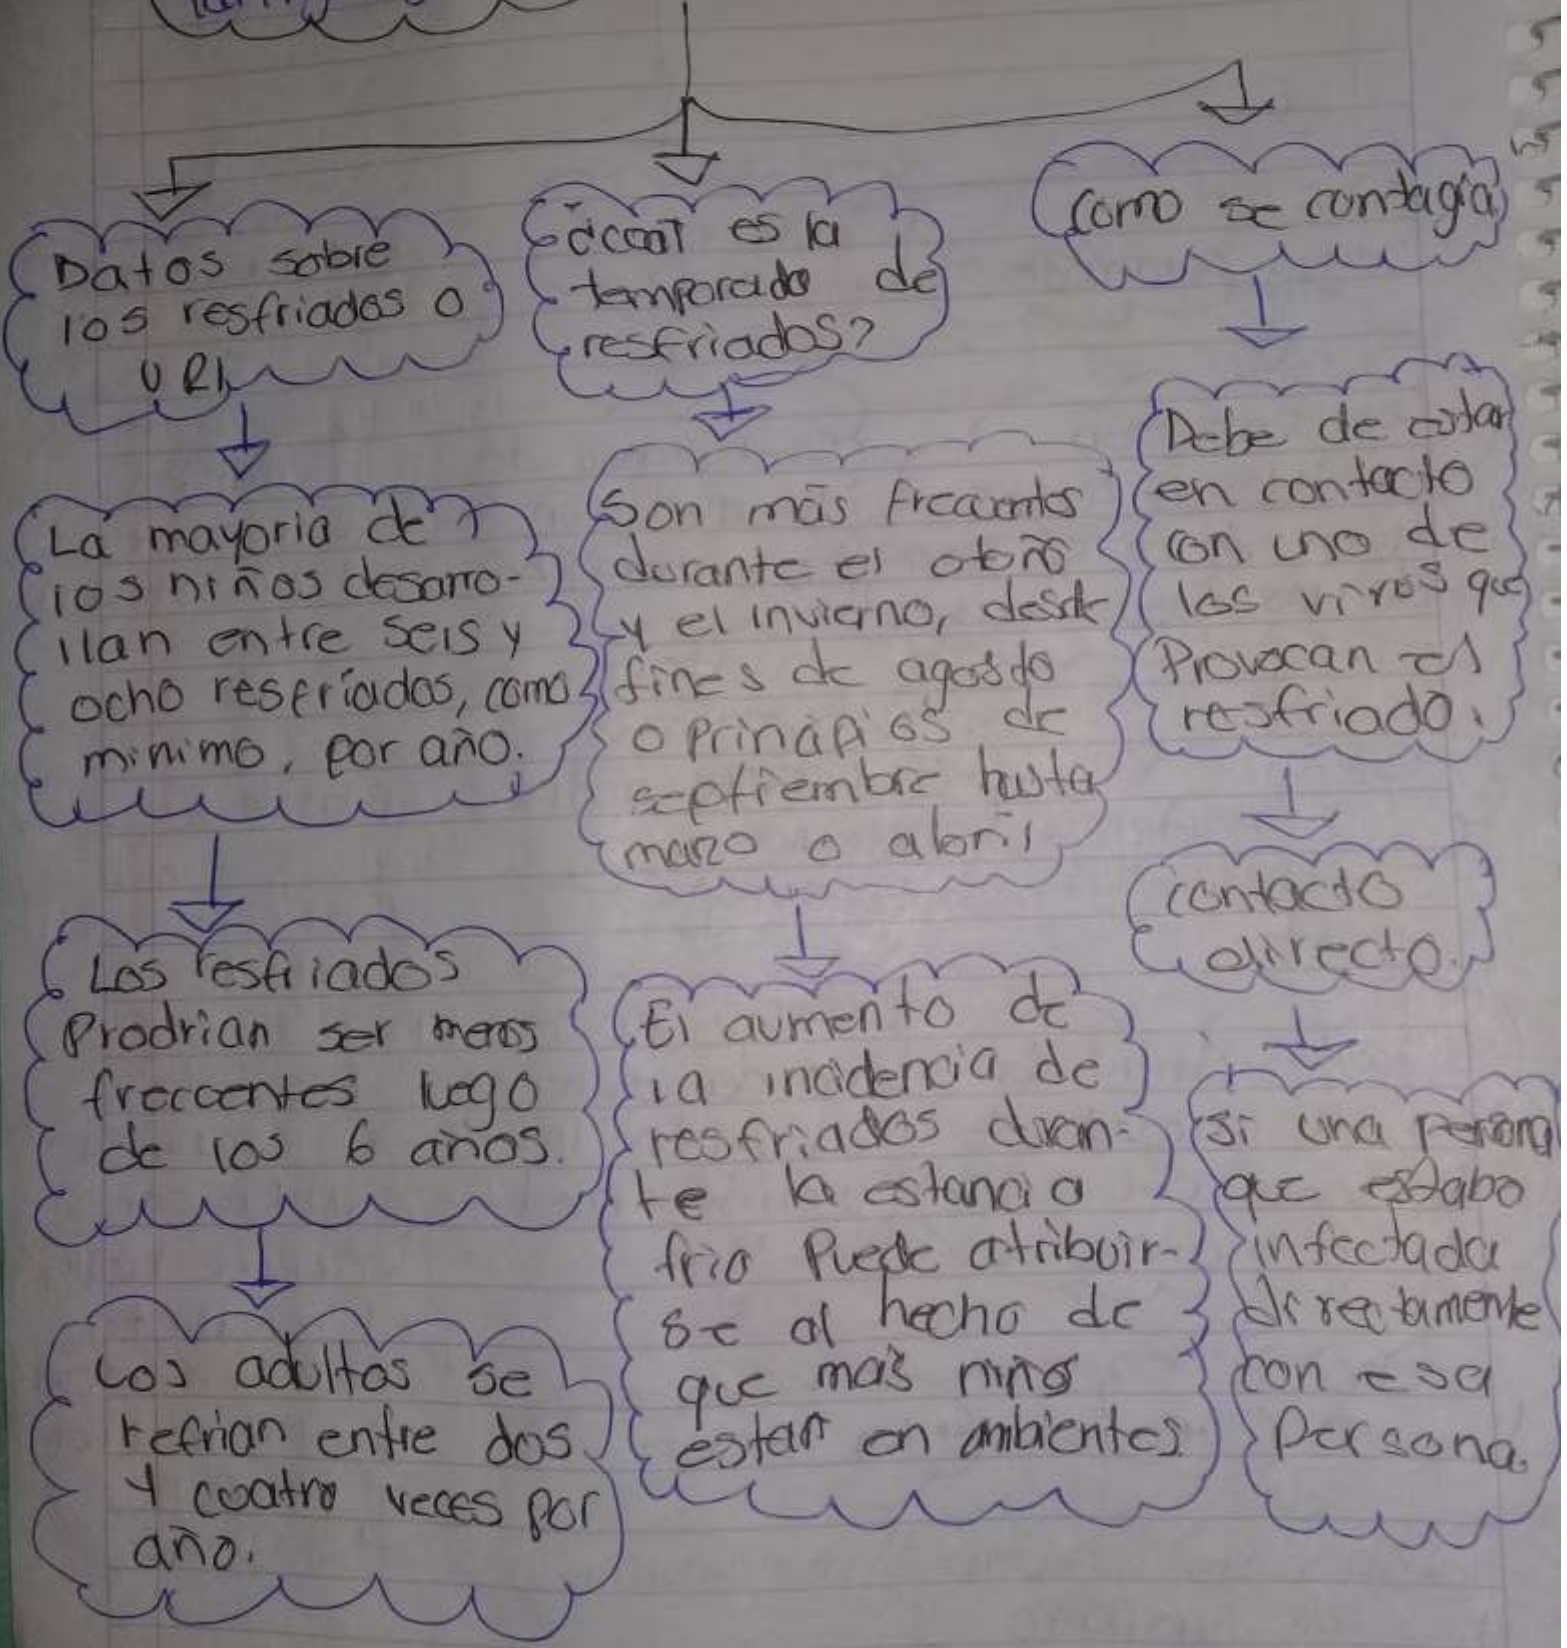 Datos sobre
los resfriados o
URI
La mayoria de
los niños desarro-
llan entre seis y
ocho resfriados, como
minimo, por año.
Los resfriados
Prodrian ser menos
freccentes luego
de los 6 años.
Los adultos se
refrian entre dos
y cuatro veces por
año.
es la
temporada de
resfriados?
Son más frecuentes
durante el otoño
y el invierno, desde
fines de agosto
o principios de
septiembre hasta
marzo o abril
El aumento de
la incidencia de
resfriados duran-
te la estancia
frio Puede atribuir-
se al hecho de
que mas niños
estan en ambientes
Como se contagia
Debe de estar
en contacto
con uno de
los virus que
Provocan el
resfriado.
contacto
directo.
si una persona
que estabo
infectada
directamente
con esa
Persona.